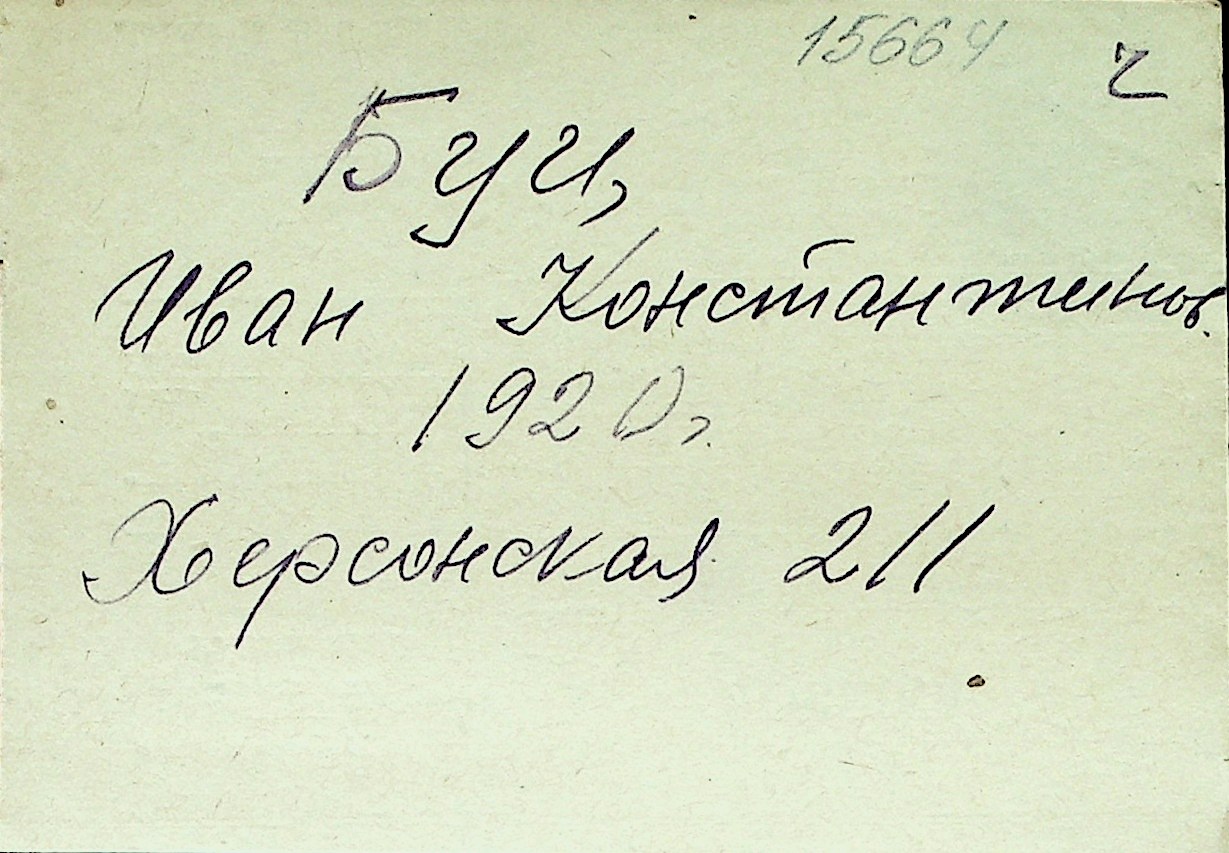 15664 ч
Буц,
Иван Константинов.
1920г.
Херсонская 211